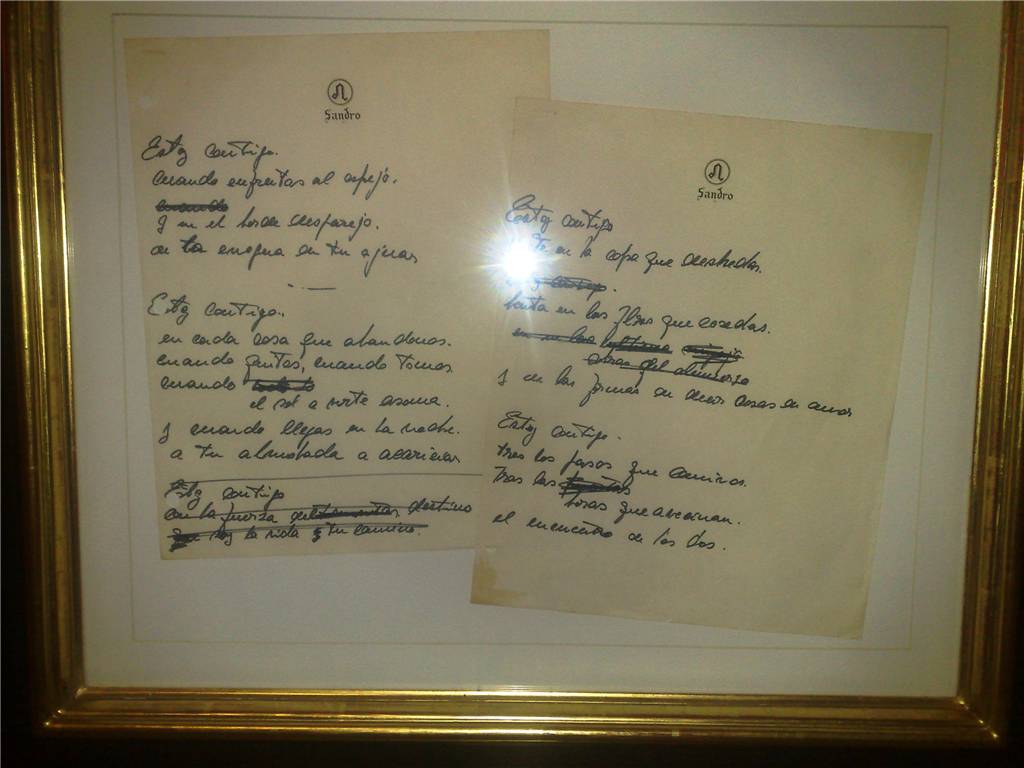 Sandro
Estoy contigo.
cuando enfrentas al espejo.
cuando
y en el borde desparejo.
de la enagua en tu
Estoy contigo.
en cada cosa que abandonas.
cuando gritas, cuando tomas
cuando
el sol a verte asoma.
y cuando llegas en la noche.
a tu almohada a acariciar
Estoy contigo
con la fuerza del destino
soy la vida y tu camino.
Sandro
Estoy contigo
en la copa que
hasta en las flores que
y en las formas en
Estoy contigo.
tras los pasos que caminas.
Tras las
horas que avecinan.
el encuentro de los dos.